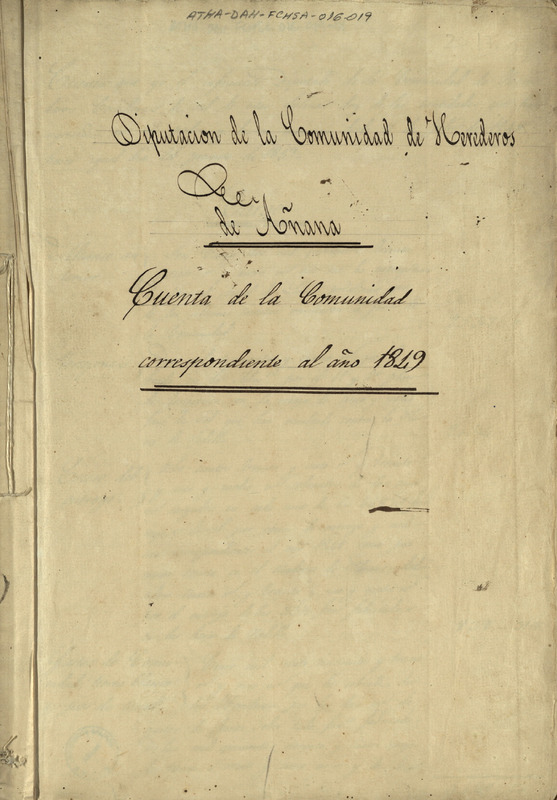 ATHA-DAH-FCHSA-016-019
Diputacion de la Comunidad de Herederos
de Añana
Cuenta de la Comunidad
correspondiente al año 1849